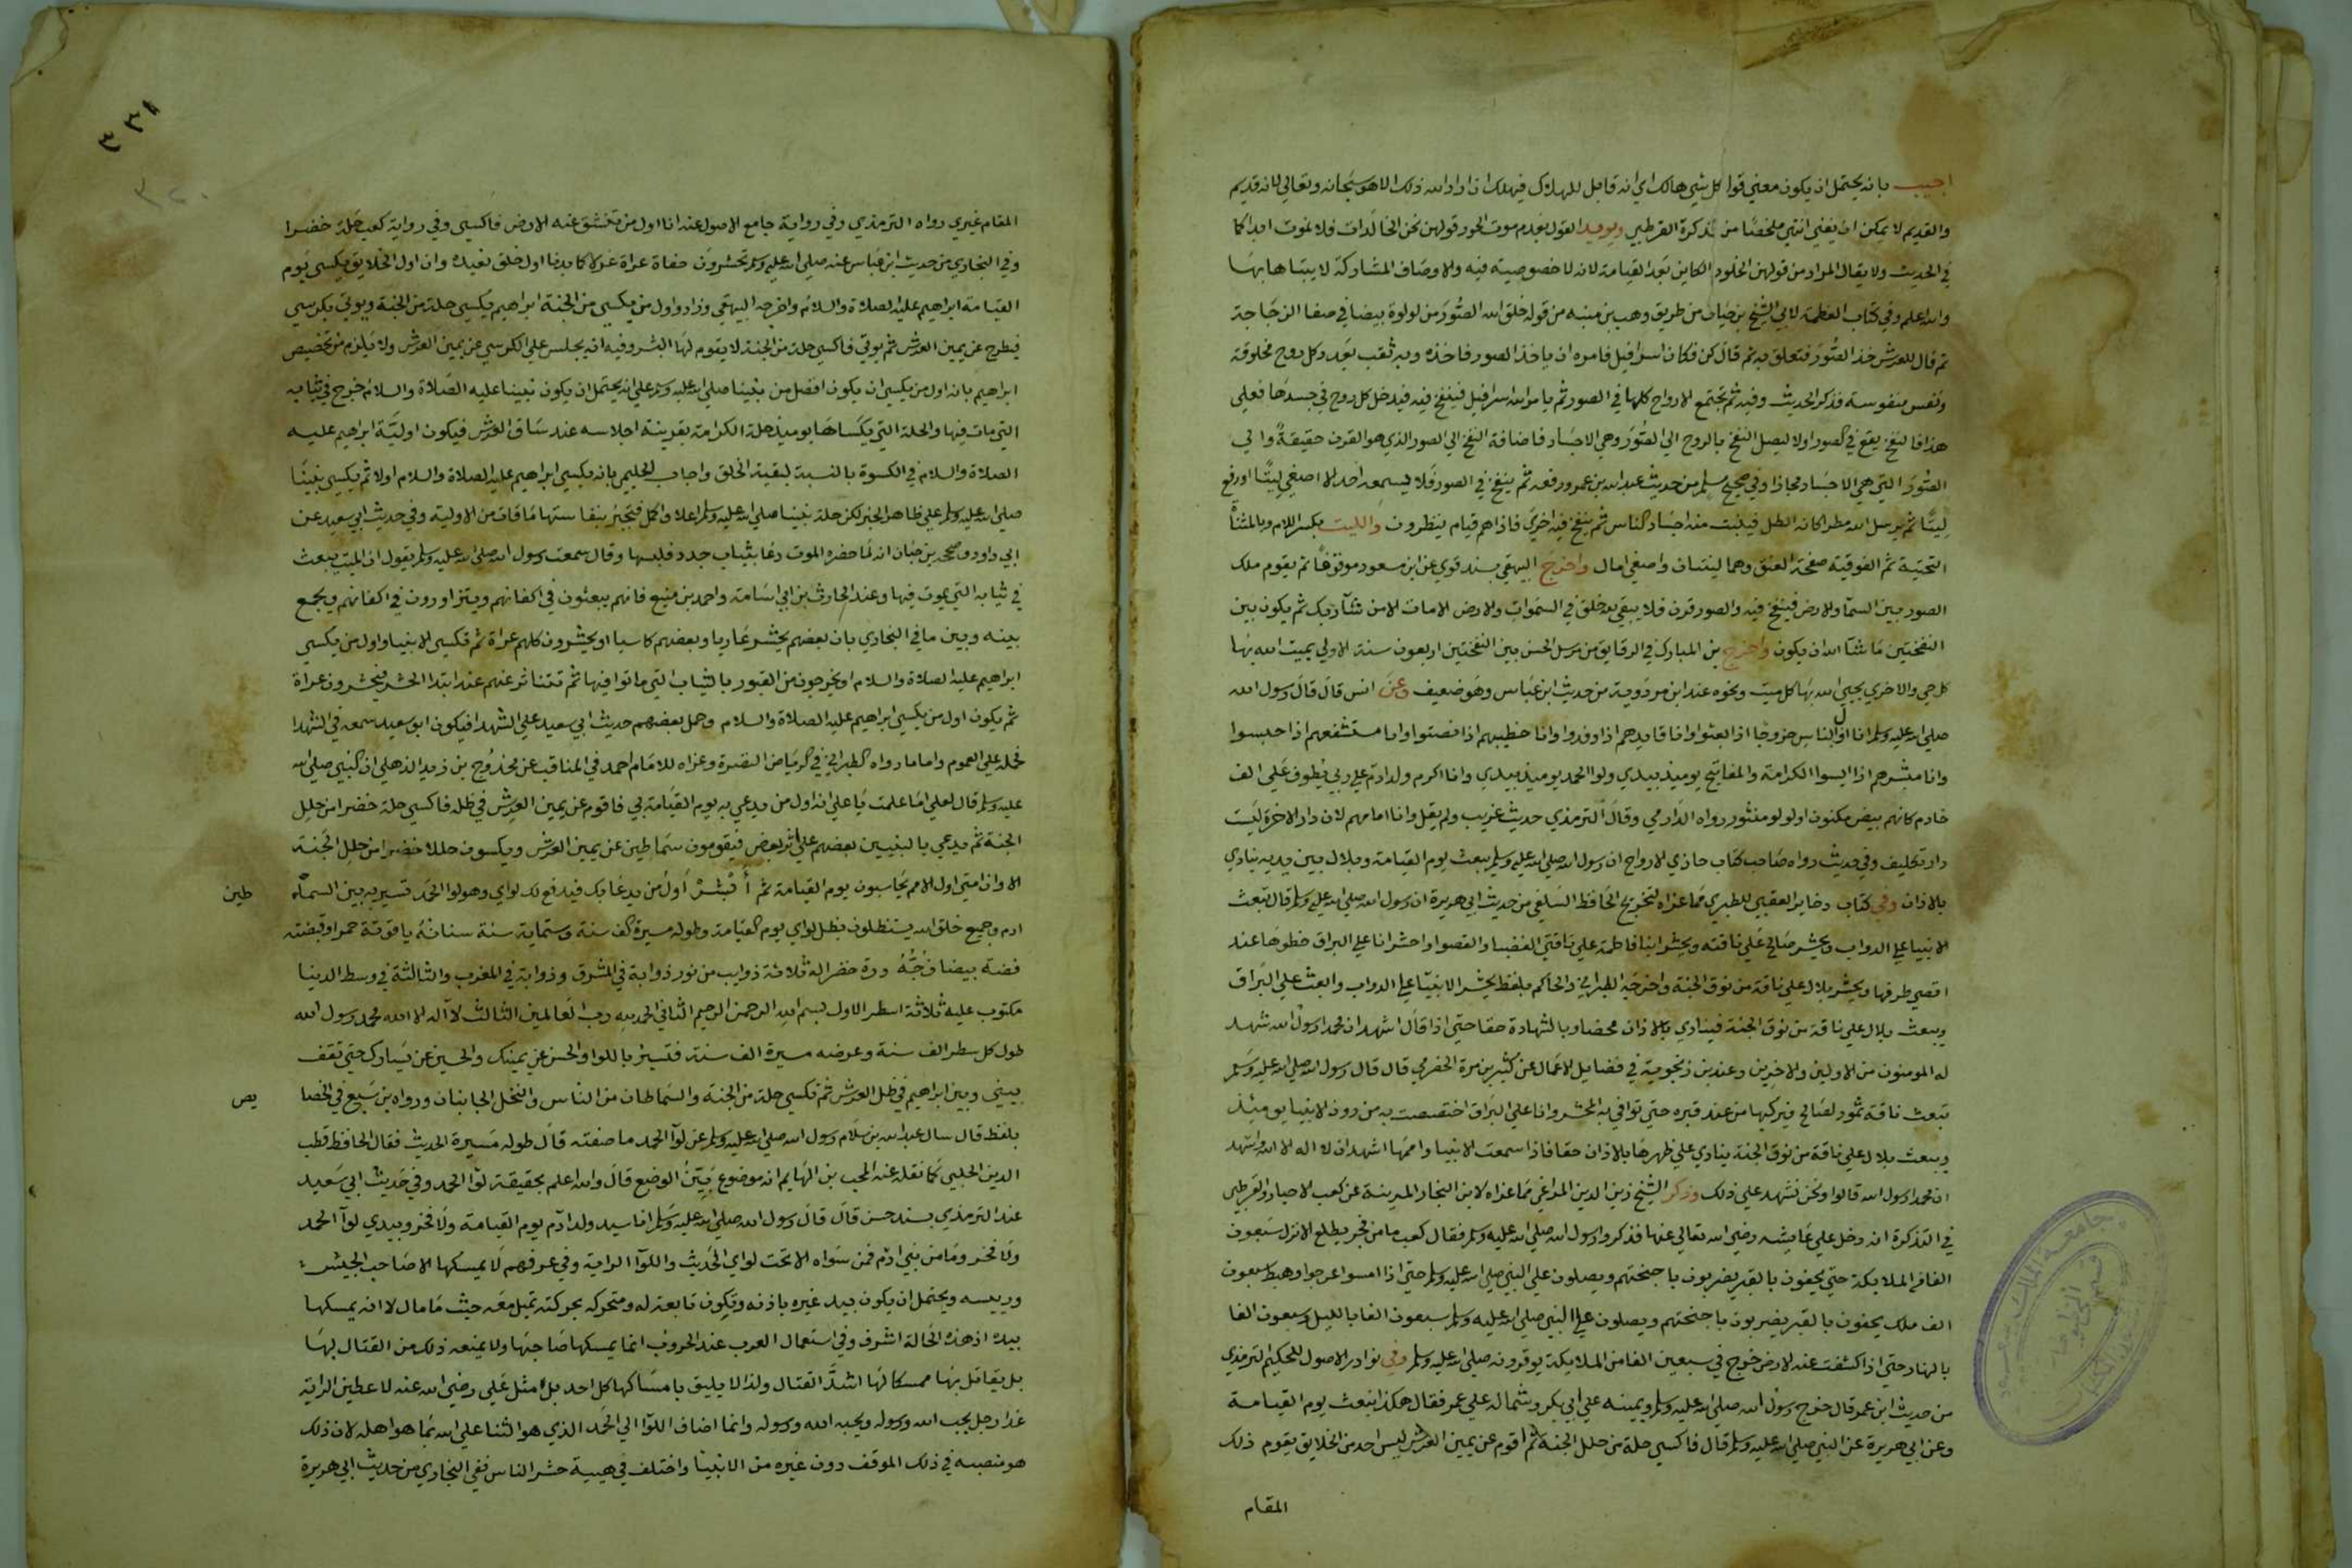 اجيب بانه يحتمل ان يكون معني قوله كل شي هالك اي انه قابل للهلاك فيهلك ان اراد الله ذلك الا هو سبحانه وتعالي لانه قديم
والقديم لا يمكن ان يفني انتهي ملخصًا من تذكرة القرطبي ويويد القول بعدم موت الحور قولهن نحن الخالدات فلا نموت ابدا كا
في الحديث ولا يقال المراد من قولهن الخلود الكاين بعد القيامة لانه لا خصوصية فيه والاوصاف المشاركة لا يتباها بها
والله اعلم وفي كتاب العظمة لابي الشيخ بن حيان من طريق وهب بن منبه من قوله خلق الله الصُّورَ من لولوة بيضا في صفا الزجاجة
ثم قال للعرش خذ الصُّورَ فتعلق به ثم قال كن فكان اسرافيل فامره ان ياخذ الصور فاخذه وبه ثقب بعدد كل روح مخلوقة
ونفس منفوسة فذكر الحديث وفيه ثم تجتمع الارواح كلها في الصور ثم يامر الله اسرافيل فينفخ فيه فيدخل كل روح في جسدها فعلي
هذا فالنفخ يقع في الصور اولا ليصل النفخ بالروح الي الصُّورَ وهي الاجساد فاضافة النفخ الي الصور الذي هو القرن حقيقةً والي
الصُّوَرَ التي هي الاجساد مجازا وفي صحيح مسلم من حديث عبد الله بن عمرو رفعه ثم ينفخ في الصور فلا يسمعه احد الا اصغي لِيتًا ورفع
لِيتًا ثم يرسل الله مطرا كانه الطل فينبت منه اجساد الناس ثم ينفخ فيه اخري فاذا هم قيام ينظرون والليت بكسر اللام وبالمثناة
التحتية ثم الفوقية صفحة العنق وهما ليتان واصغي امال واخرج البيهقي بسند قوي عن ابن مسعود موقوفًا ثم يقوم ملك
الصور بين السمآ والارض فينفخ فيه والصور قرن فلا يبقي لله خلق في السموات والارض الا مات الا من شآ ربك ثم يكون بين
النفختين ما شآ الله ان يكون واخرج بن المبارك في الرقايق من مرسل الحسن بين النفختين اربعون سنة الاولي يميت الله بها
كل حي والاخري يحيي الله بها كل ميت ونحوه عند ابن مردوية من حديث ابن عباس وهو ضعيف وعن انس قال قال رسول الله
صلي الله عليه وسلم انا اول الناس خروجًا اذا بعثوا وانا قايدهم اذا وفدوا وانا خطيبهم اذا انصتوا وانا مستشفعهم اذا حبسوا
وانا مبشرهم اذا ايسوا الكرامة والمفاتيح يوميذ بيدي ولوا الحمد يوميذ بيدي وانا اكرم ولد ادم علي ربي يطوف علي الف
خادم كانهم بيض مكنون او لولو منثور رواه الدارمي وقال الترمذي حديث غريب ولم يقل وانا امامهم لان دار الاخرة ليست
دار تكليف وفي حديث رواه صاحب كتاب حاذي الارواح ان رسول الله صلي الله عليه وسلم يبعث يوم القيامة وبلال بين يديه ينادي
بالاذان وفي كتاب دخاير العقبي للطبري مما عزاه لتخريج الحافظ السلفي من حديث ابي هريرة ان رسول الله صلي الله عليه وسلم قال تبعث
الانبيا علي الدواب ويحشر صالح علي ناقته ويحشر ابنا فاطمة علي ناقتي العضبا والقصوا واحشر انا علي البراق خطوها عند
اقصي طرفها ويحشر بلال علي ناقة من نوق الجنة واخرجه الطبراني والحاكم بلفظ يحشر الانبيا علي الدواب وابعث علي البُراق
ويبعث بلال علي ناقة من نوق الجنة فينادي بالاذان محضا وبالشهادة حقا حتي اذا قال اشهد ان محمدا رسول الله شهد
له المومنون من الاولين والاخرين وعند بن زنجوية في فضايل الاعمال عن كثير بن مرة الحضرمي قال قال رسول الله صلي الله عليه وسلم
تبعث ناقة ثمود لصالح فيركبها من عند قبره حتي توافي به المحشر وانا علي البُراق اختصصت به من دون الانبيا يوميذ
ويبعث بلال علي ناقة من نوق الجنة ينادي علي ظهرها بالاذان حقا فاذا سمعت الانبيا واممها اشهد ان لا اله الا الله واشهد
ان محمدا رسول الله قالوا ونحن نشهد علي ذلك وذكر الشيخ زين الدين المراغي مما عزاه لابن النجار المدينة عن كعب الاحبار والقرطبي
في التذكرة انه دخل علي عايشه رضي الله تعالي عنها فذكروا رسول الله صلي الله عليه وسلم فقال كعب ما من فجر يطلع الا نزل سبعون
الفا من الملايكة حتي يحفون بالقبر يضربون باجنحتهم ويصلون علي النبي صلي الله عليه وسلم حتي اذا امسوا عرجوا وهبط سبعون
الف ملك يحفون بالقبر يضربون باجنحتهم ويصلون علي النبي صلي الله عليه وسلم سبعون الفا بالليل وسبعون الفا
بالنهار حتي اذا انشقت عنه الارض خرج في سبعين الفا من الملايكة يوقرونه صلي الله عليه وسلم وفي نوادر الاصول للحكيم الترمذي
من حديث ابن عمر قال خرج رسول الله صلي الله عليه وسلم ويمينه علي ابي بكر وشماله علي عمر فقال هكذا نبعث يوم القيامة
وعن ابي هريرة عن النبي صلي الله عليه وسلم قال فاكسي حلة من حلل الجنة ثم اقوم عن يمين العرش ليس احد من الخلايق يقوم ذلك
المقام
٣٣١
٣٢٠
المقام غيري رواه الترمذي وفي رواية جامع الاصول عنه انا اول من تنشق عنه الارض فاكسي وفي رواية كعب حلة خضرا
وفي البخاري من حديث ابن عباس عنه صلي الله عليه وسلم تحشرون حفاة عراة غرلا كما بدانا اول خلق نعيده وان اول الخلايق يكسي يوم
القيامة ابراهيم عليه الصلاة والسلام واخرجه البيهقي وزاد واول من يكسي من الجنة ابراهيم يكسي حلة من الجنة ويوتي بكرسي
فيطرح عن يمين العرش ثم يوتي فاكسي حلة من الجنة لا يقوم لها البشر وفيه انه يجلس علي الكرسي عن يمين العرش ولا يلزم من تخصيص
ابراهيم بانه اول من يكسي ان يكون افضل من نبينا صلي الله عليه وسلم علي انه يحتمل ان يكون نبينا عليه الصلاة والسلام خرج في ثيابه
التي مات فيها والحلة التي يكساها يوميذ حلة الكرامة بقرينة اجلاسه عند ساق العرش فيكون اوليَّة ابراهيم عليه
الصلاة والسلام في الكسوة بالنسبة لبقية الخلق واجاب الحليمي بانه يكسي ابراهيم عليه الصلاة والسلام اولا ثم يكسي نبينا
صلي الله عليه وسلم علي ظاهر الخبر لكن حلة نبينا صلي الله عليه وسلم اعلا واكمل فتجبر بنفاستها ما فات من الاولية وفي حديث ابي سعيد عن
ابي داود وصححه بن حبان انه لما حضره الموت دعا بثياب جدد فلبسها وقال سمعت رسول الله صلي الله عليه وسلم يقول ان الميت يبعث
في ثيابه التي يموت فيها وعند الحارث بن ابي اسامة واحمد بن منيع فانهم يبعثون في اكفانهم ويتزاورون في اكفانهم ويجمع
بينه وبين ما في البخاري بان بعضهم يحشر عاريا وبعضهم كاسيا او يحشرون كلهم عراة ثم تكسي الانبيا واول من يكسي
ابراهيم عليه الصلاة والسلام او يخرجون من القبور بالثياب التي ماتوا فيها ثم تتناثر عنهم عند ابتدا الحشر فيحشرون عراة
ثم يكون اول من يكسي ابراهيم عليه الصلاة والسلام وحمل بعضهم حديث ابي سعيد علي الشهدا فيكون ابو سعيد سمعه في الشهدا
فحمله علي العموم واما ما رواه الطبراني في الرياض النضرة وعزاه للامام احمد في المناقب عن محدوج بن زيد الذهلي ان النبي صلي الله
عليه وسلم قال لعلي اما علمت يا علي انه اول من يدعي به يوم القيامة بي فاقوم عن يمين العرش في ظله فاكسي حلة خضرا من حلل
الجنة ثم يدعي بالنبيين بعضهم علي اثر بعض فيقومون سماطين عن يمين العرش ويكسون حللا خضرا من حلل الجنة
الا وان امتي اول الامم يحاسبون يوم القيامة ثم أَبْشِرْ اول من يدعا بك فيدفع لك لواي وهو لوا الحمد فتسير به بين السماطين
ادم وجميع خلق الله يستظلون بظل لواي يوم القيامة وطوله مسيرة الف سنة وستماية سنة سنانه ياقوتة حمرا وقبضته
فضة بيضا زُجُّهُ درة خضرا له ثلاثة ذوايب من نور ذوابة في المشرق وذوابة في المغرب والثالثة في وسط الدنيا
مكتوب عليه ثلاثة اسطر الاول بسم الله الرحمن الرحيم الثاني الحمد لله رب العالمين الثالث لا اله الا الله محمد رسول الله
طول كل سطر الف سنة وعرضه مسيرة الف سنة فتسير باللوا والحسن عن يمينك والحسين عن يسارك حتي تقف
بيني وبين ابراهيم في ظل العرش ثم تكسي حلة من الجنة والسماطان من الناس والنخل الجانبان ورواه بن سبع في الخصايص
بلفظ قال سال عبد الله بن سلام رسول الله صلي الله عليه وسلم عن لوآ الحمد ما صفته قال طوله مسيرة الحديث فقال الحافظ قطب
الدين الحلبي كما نقله عنه المحب بن الهايم انه موضوع بَيِّنُ الوضع قال والله اعلم بحقيقة لوا الحمد وفي حديث ابي سعيد
عند الترمذي بسند حسن قال قال رسول الله صلي الله عليه وسلم انا سيد ولد ادم يوم القيامة ولا فخر وبيدي لوآ الحمد
ولا فخر وما من نبي ادم فمن سواه الا تحت لواي الحديث واللوآ الراية وفي عرفهم لا يمسكها الا صاحب الجيش
ورييسه ويحتمل ان يكون بيد غيره باذنه وتكون تابعة له ومتحركة بحركته تميل معه حيث ما مال لا انه يمسكها
بيده اذ هذه الحالة اشرف وفي استعمال العرب عند الحروب انما يمسكها صاحبها ولا يمنعه ذلك من القتال بها
بل يقاتل بها ممسكا لها اشدَّ القتال ولذا لا يليق بامساكها كل احد بل مثل علي رضي الله عنه لاعطين الراية
غدا رجل يحب الله ورسوله ويحبه الله ورسوله وانما اضاف اللوآ الي الحمد الذي هو الثنا علي الله بما هو اهله لان ذلك
هو منصبه في ذلك الموقف دون غيره من الانبيا واختلف في هيية حشر الناس ففي البخاري من حديث ابي هريرة